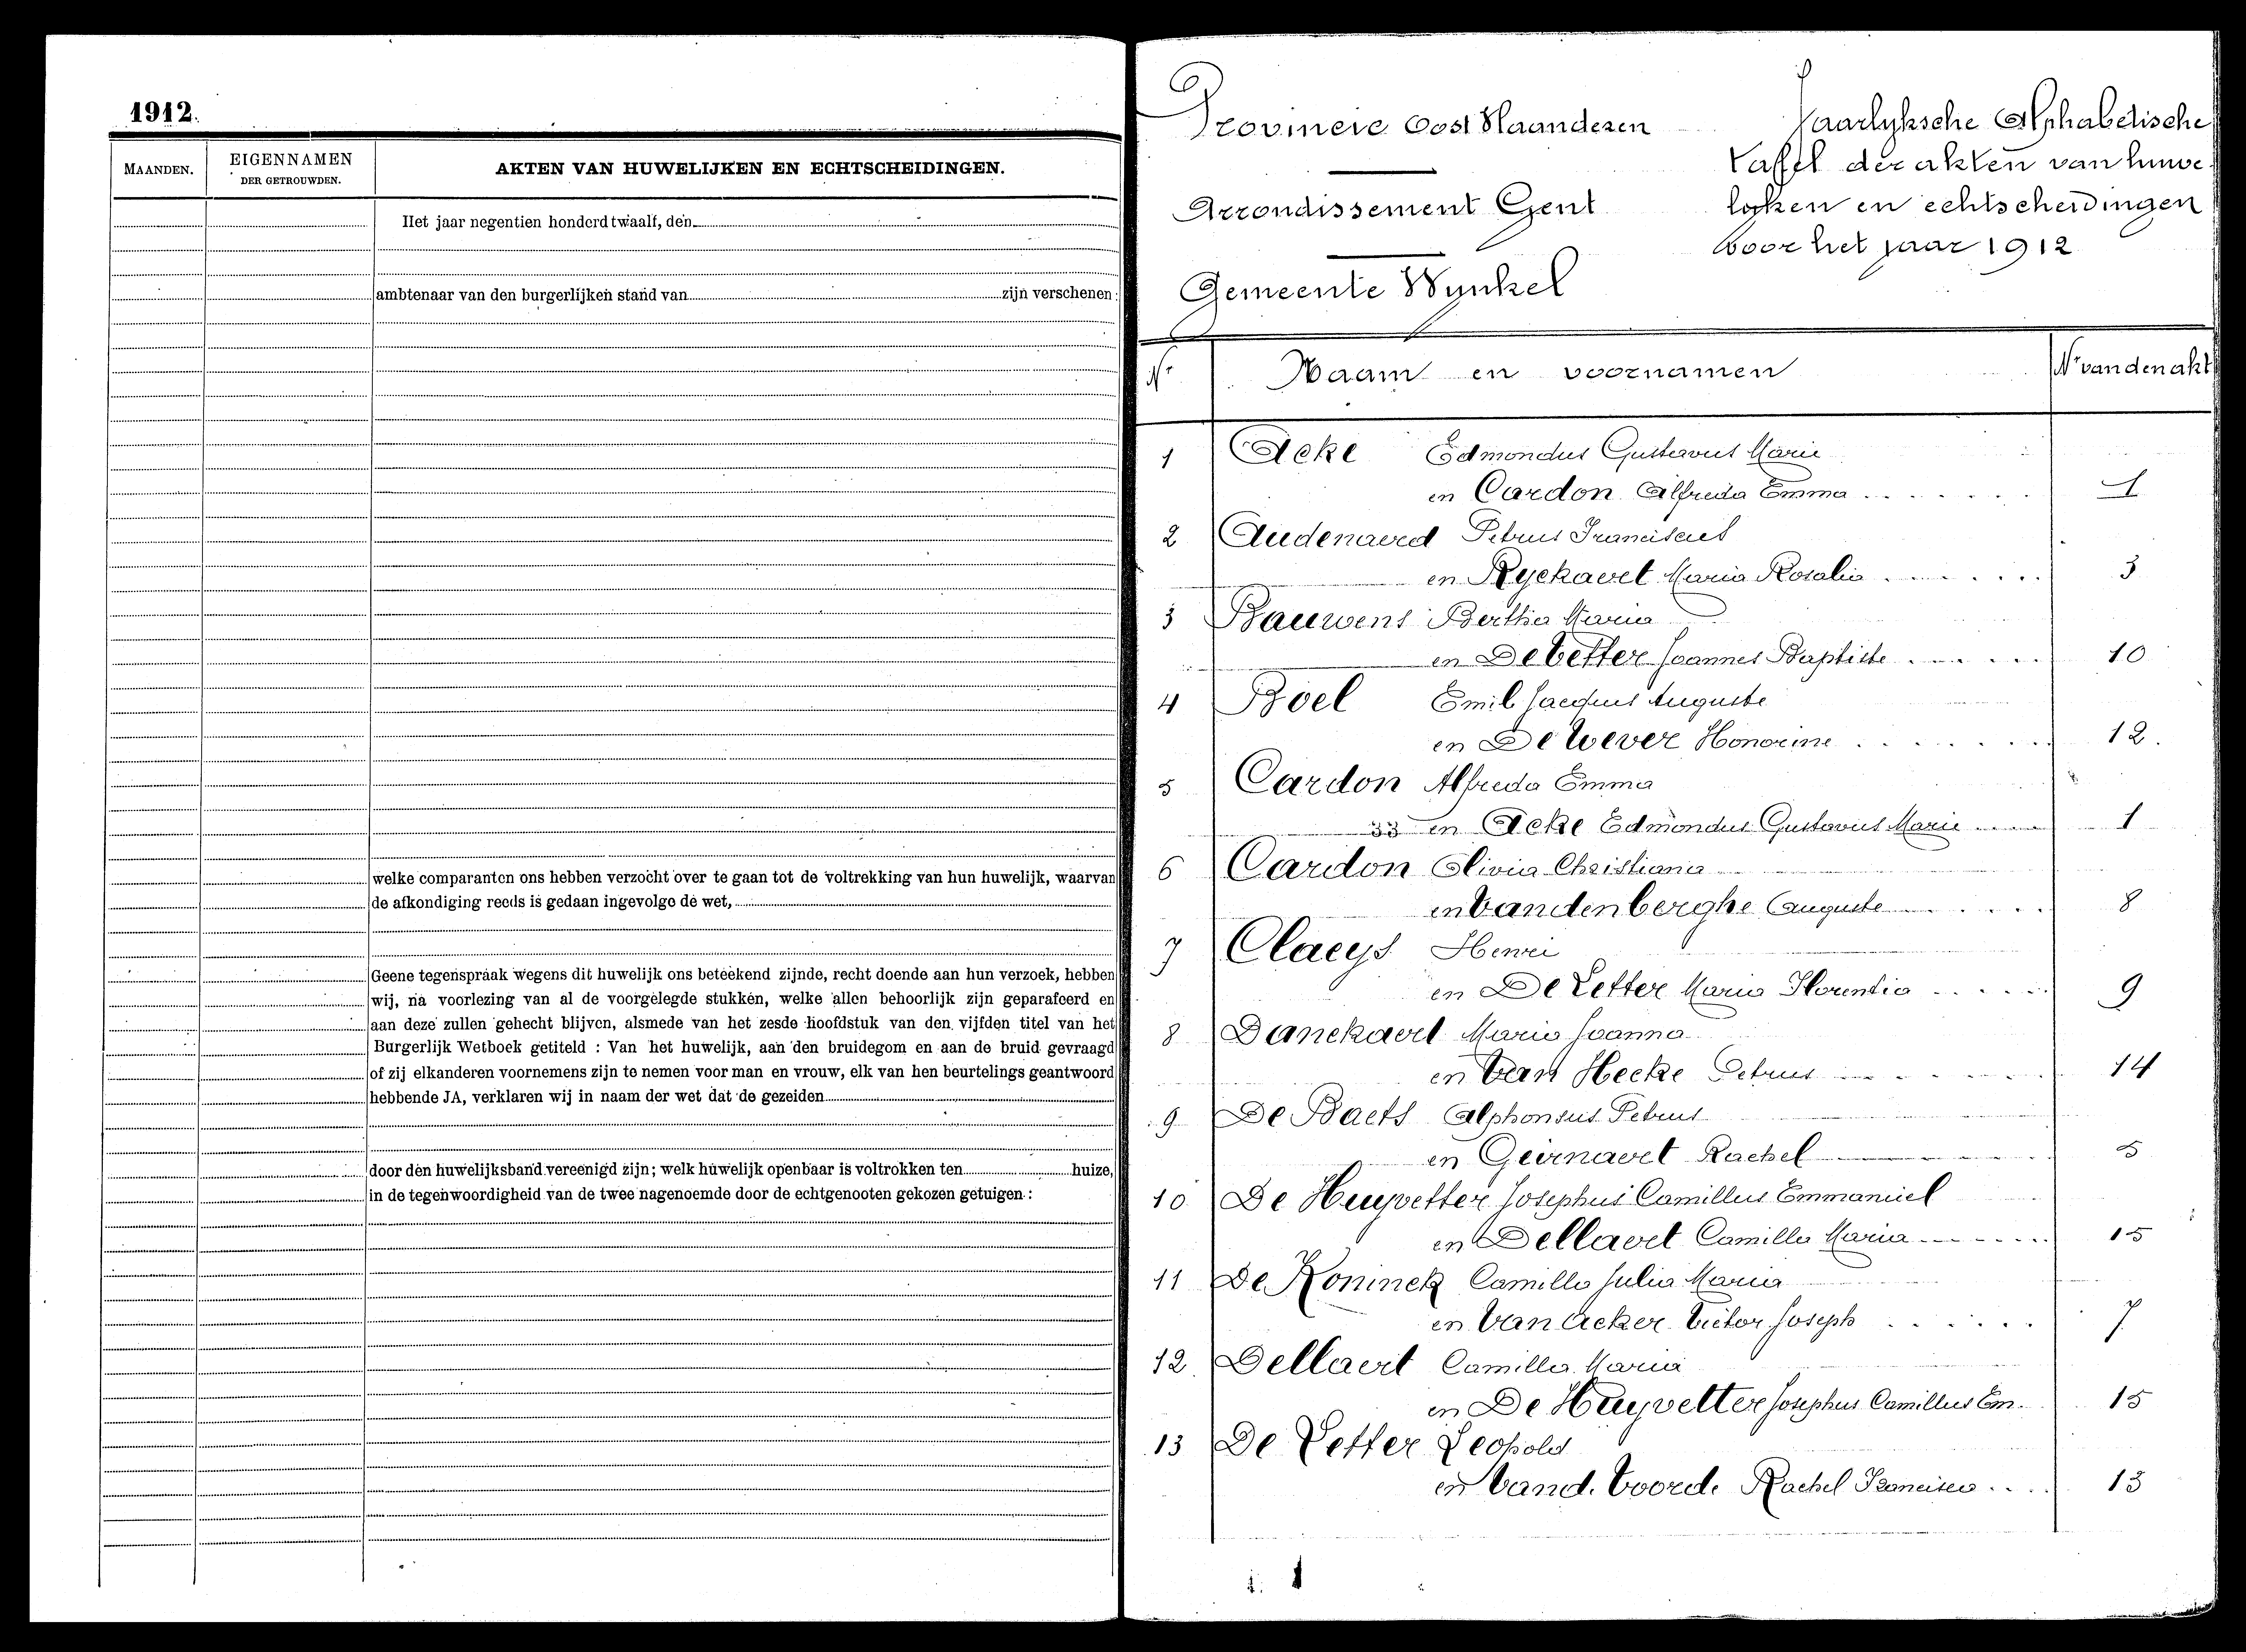 1912.
MAANDEN.
EIGENNAMEN
DER GETROUWDEN.
AKTEN VAN HUWELIJKEN EN ECHTSCHEIDINGEN.
Het jaar negentien honderd twaalf, den
ambtenaar van den burgerlijken stand van zijn verschenen :
welke comparanten ons hebben verzocht over te gaan tot de voltrekking van hun huwelijk, waarvan
de afkondiging reeds is gedaan ingevolge de wet,
Geene tegenspraak wegens dit huwelijk ons beteekend zijnde, recht doende aan hun verzoek, hebben
wij, na voorlezing van al de voorgelegde stukken, welke allen behoorlijk zijn geparafeerd en
aan deze zullen gehecht blijven, alsmede van het zesde hoofdstuk van den vijfden titel van het
Burgerlijk Wetboek getiteld : Van het huwelijk, aan den bruidegom en aan de bruid gevraagd
of zij elkanderen voornemens zijn te nemen voor man en vrouw, elk van hen beurtelings geantwoord
hebbende JA, verklaren wij in naam der wet dat de gezeiden
door den huwelijksband vereenigd zijn; welk huwelijk openbaar is voltrokken ten huize,
in de tegenwoordigheid van de twee nagenoemde door de echtgenooten gekozen getuigen :
Provincie Oost Vlaanderen
Arrondissement Gent
Gemeente Wynkel
Jaarlyksche Alphabetische
tafel der akten van huwe-
lyken en echtscheidingen
voor het jaar 1912
Nr Naam en voornamen Nr van den akt
1 Acke Edmondus Gustavus Marie
en Cardon Alfreda Emma 1
2 Audenaerd Petrus Franciscus
en Ryckaert Maria Rosalia 3
3 Bauwens Bertha Maria
en De Vetter Joannes Baptiste 10
4 Boel Emil Jacques Auguste
en De Wever Honorine 12.
5 Cardon Alfreda Emma
en Acke Edmondus Gustavus Marie 1
6 Cardon Olivia Christiana
en Vandenberghe Auguste 8
7 Claeys Henri
en De Letter Maria Florentia 9
8 Danckaert Maria Joanna
en Van Hecke Petrus 14
9 De Baets Alphonsus Petrus
en Geirnaert Rachel 5
10 De Huyvetter Josephus Camillus Emmanuel
en Dellaert Camilla Maria 15
11 De Koninck Camilla Julia Maria
en Van Acker Victor Joseph 7
12 Dellaert Camilla Maria
en De Huyvetter Josephus Camillus Em. 15
13 De Letter Leopold
en Vand. Voorde Rachel Francisca 13